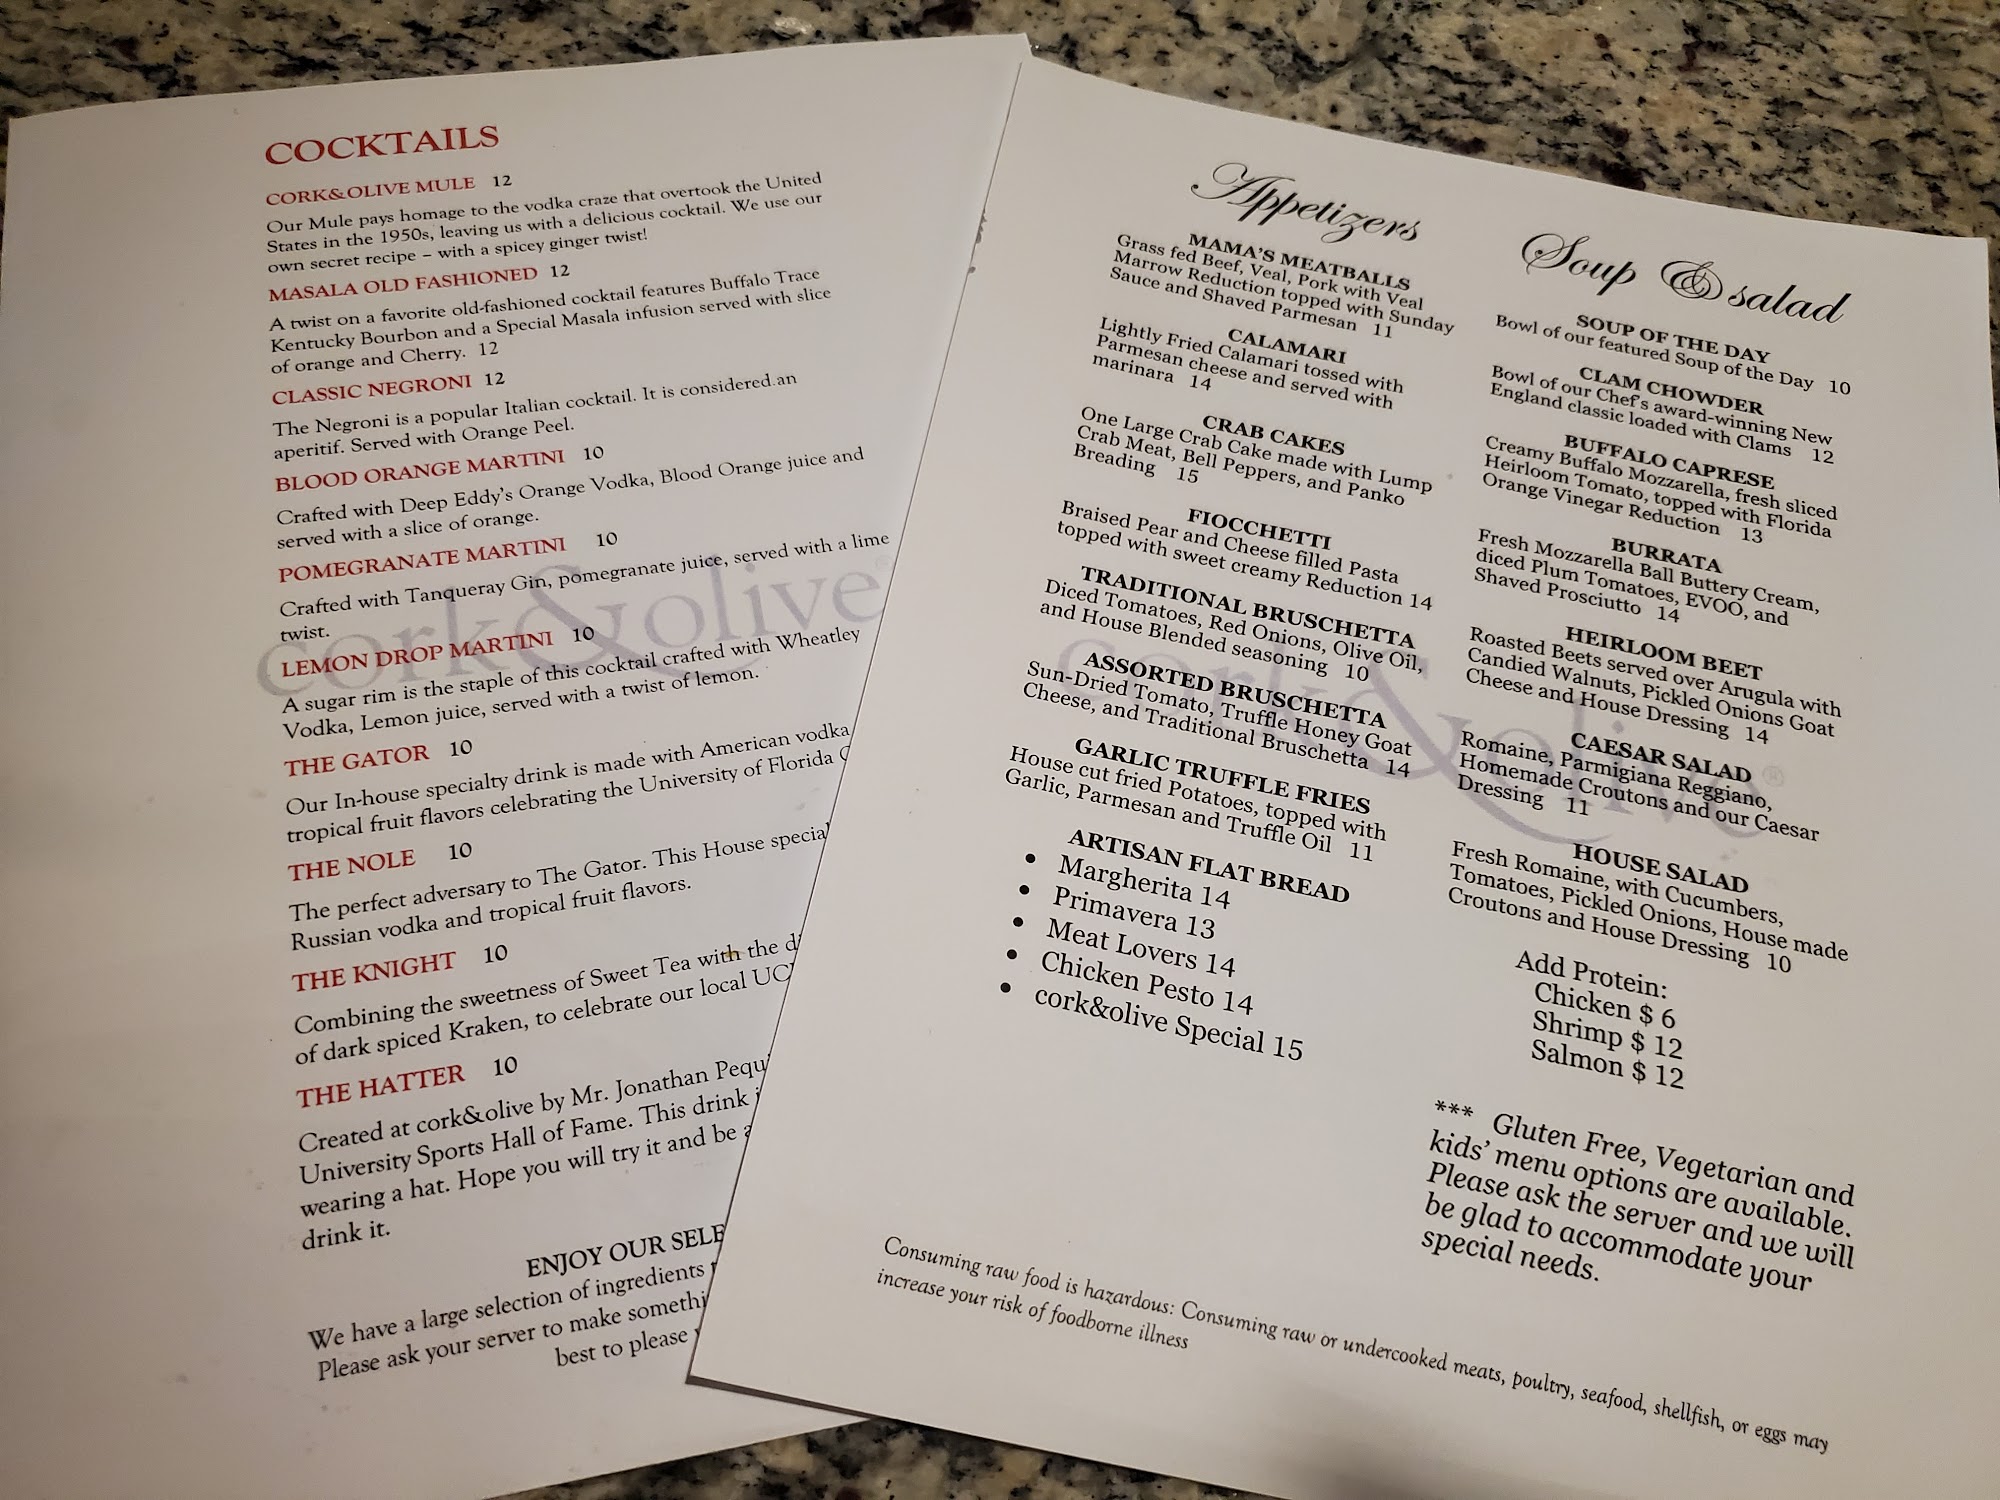 COCKTAILS
CORK&OLIVE MULE 12
Our Mule pays homage to the vodka craze that overtook the United
States in the 1950s, leaving us with a delicious cocktail. We use our
own secret recipe – with a spicey ginger twist!
MASALA OLD FASHIONED 12
A twist on a favorite old-fashioned cocktail features Buffalo Trace
Kentucky Bourbon and a Special Masala infusion served with slice
of orange and Cherry. 12
CLASSIC NEGRONI 12
The Negroni is a popular Italian cocktail. It is considered.an
aperitif. Served with Orange Peel.
BLOOD ORANGE MARTINI 10
Crafted with Deep Eddy's Orange Vodka, Blood Orange juice and
served with a slice of orange.
POMEGRANATE MARTINI 10
Crafted with Tanqueray Gin, pomegranate juice, served with a lime
twist.
cork&olive
LEMON DROP MARTINI 10
A sugar rim is the staple of this cocktail crafted with Wheatley
Vodka, Lemon juice, served with a twist of lemon.
THE GATOR 10
Our In-house specialty drink is made with American vodka
tropical fruit flavors celebrating the University of Florida
THE NOLE 10
The perfect adversary to The Gator. This House special
Russian vodka and tropical fruit flavors.
THE KNIGHT 10
Combining the sweetness of Sweet Tea with the
of dark spiced Kraken, to celebrate our local
THE HATTER 10
Created at cork&olive by Mr. Jonathan
University Sports Hall of Fame. This drink
wearing a hat. Hope you will try it and be
drink it.
ENJOY OUR
We have a large selection of ingredients
Please ask your server to make
best to please
Appetizers
MAMA'S MEATBALLS
Grass fed Beef, Veal, Pork with Veal
Marrow Reduction topped with Sunday
Sauce and Shaved Parmesan 11
CALAMARI
Lightly Fried Calamari tossed with
Parmesan cheese and served with
marinara 14
CRAB CAKES
One Large Crab Cake made with Lump
Crab Meat, Bell Peppers, and Panko
Breading 15
FIOCCHETTI
Braised Pear and Cheese filled Pasta
topped with sweet creamy Reduction 14
TRADITIONAL BRUSCHETTA
Diced Tomatoes, Red Onions, Olive Oil,
and House Blended seasoning 10
ASSORTED BRUSCHETTA
Sun-Dried Tomato, Truffle Honey Goat
Cheese, and Traditional Bruschetta 14
GARLIC TRUFFLE FRIES
House cut fried Potatoes, topped with
Garlic, Parmesan and Truffle Oil 11
ARTISAN FLAT BREAD
• Margherita 14
• Primavera 13
• Meat Lovers 14
• Chicken Pesto 14
• cork&olive Special 15
Soup & salad
SOUP OF THE DAY
Bowl of our featured Soup of the Day 10
CLAM CHOWDER
Bowl of our Chef's award-winning New
England classic loaded with Clams 12
BUFFALO CAPRESE
Creamy Buffalo Mozzarella, fresh sliced
Heirloom Tomato, topped with Florida
Orange Vinegar Reduction 13
BURRATA
Fresh Mozzarella Ball Buttery Cream,
diced Plum Tomatoes, EVOO, and
Shaved Prosciutto 14
HEIRLOOM BEET
Roasted Beets served over Arugula with
Candied Walnuts, Pickled Onions Goat
Cheese and House Dressing 14
CAESAR SALAD
Romaine, Parmigiana Reggiano,
Homemade Croutons and our Caesar
Dressing 11
HOUSE SALAD
Fresh Romaine, with Cucumbers,
Tomatoes, Pickled Onions, House made
Croutons and House Dressing 10
Add Protein:
Chicken $ 6
Shrimp $ 12
Salmon $ 12
*** Gluten Free, Vegetarian and
kids' menu options are available.
Please ask the server and we will
be glad to accommodate your
special needs.
cork&olive®
Consuming raw food is hazardous: Consuming raw or undercooked meats, poultry, seafood, shellfish, or eggs may
increase your risk of foodborne illness